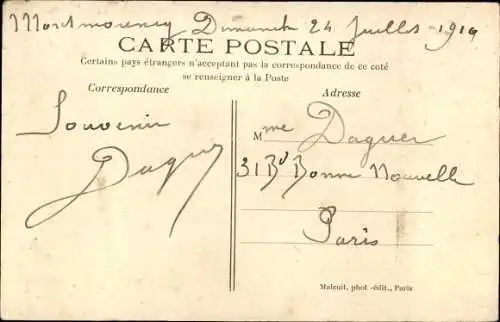 Montmorency Dimanche 24 Juillet 1910
CARTE POSTALE
Certains pays étrangers n'acceptant pas la correspondance de ce coté
se renseigner à la Poste
Correspondance
Souvenir
Daguer
Adresse
Mme Daguer
31 Bd Bonne Nouvelle
Paris
Maleuit, phot-édit., Paris